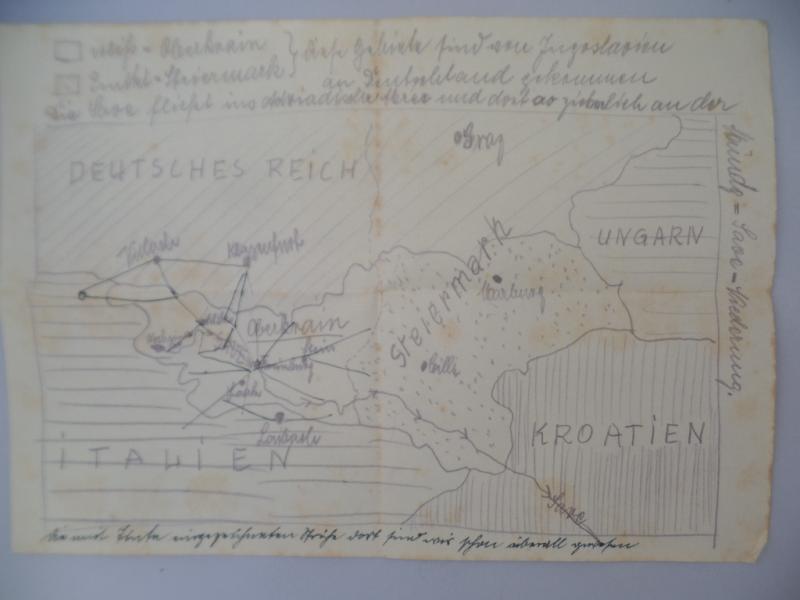 weiß = Oberkrain } diese Gebiete sind von Jugoslavien
Punktet = Steiermark an Deutschland gekommen
Die Save fließt ins adriadische Meer und dort so ziemlich an der
DEUTSCHES REICH
Graz
UNGARN
Villach
Klagenfurt
Steiermark
Marburg
Oberkrain
SAVE
Stein
Krainburg
Cilli
Laak
Laibach
ITALIEN
KROATIEN
Save
Die mit Tinte eingezeichneten Striche dort sind wir schon überall gewesen
= Save = Niederung.